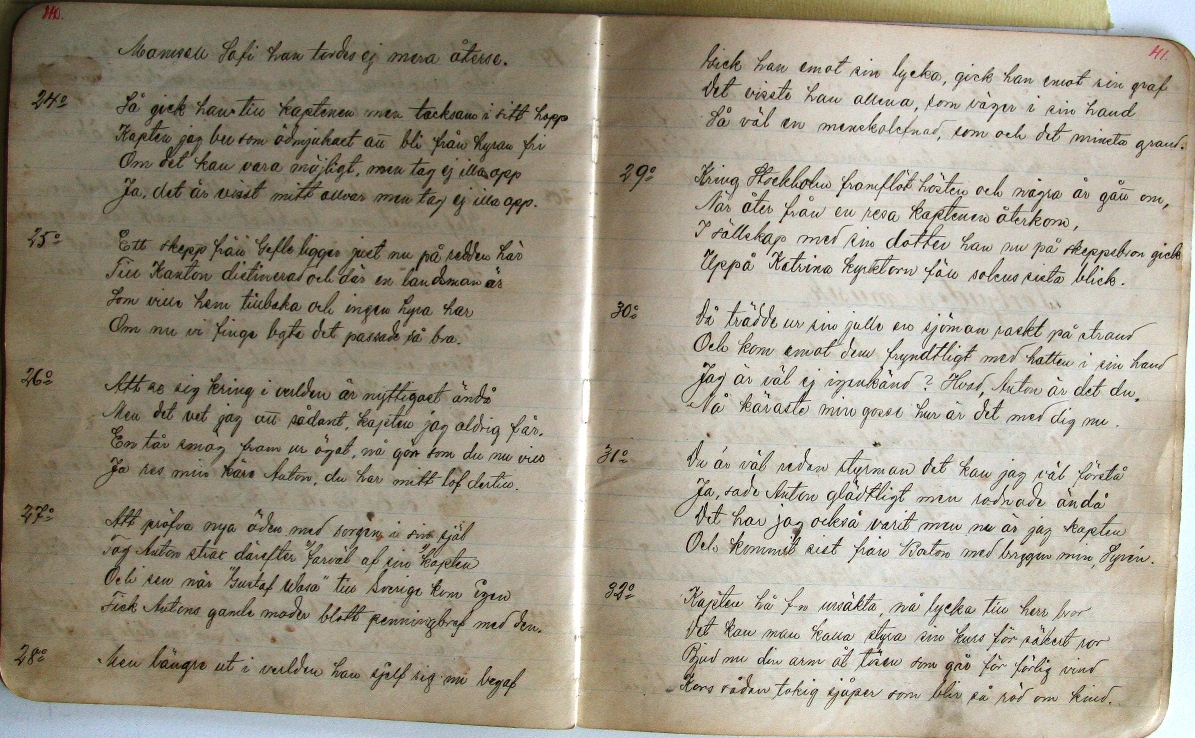 40.
Mamsell Sofi han tordes ej mera återse.
24º Så gick han till kaptenen men tacksam i sitt hopp
Kapten jag ber som ödmjukast att bli från hyran fri
Om det kan vara möjligt, men tag ej illa opp
Ja, det är visst mitt allvar men tag ej illa opp.
25º Ett skepp från Gefle ligger just nu på redden här
Till Kanton distinerad och där en landsman är
Som vill hem tillbaka och ingen hyra har
Om nu vi finge byta det passade så bra.
26º Att se sig kring i verlden är nyttigast ändå
Men det vet jag att sådant, kapten jag aldrig får.
En tår smög fram ur ögat, nå gör som du nu vill
Ja res min käre Anton, du har mitt lof dertill.
27º Att pröfva nya öden med sorgen i sin själ
Tog Anton strax därefter farväl af sin kapten
Och sen när "Gustaf Wasa" till Sverige kom igen
Fick Antons gamla moder blott penningbref med den.
28º Men längre ut i verlden han sjelf sig nu begaf
41.
Gick han emot sin lycka, gick han emot sin graf
Det visste han allena, som väger i sin hand
Så väl en menskolefnad, som och det minsta grand.
29º Kring Stockholm framflöt hösten och några år gått om,
När åter från en resa kaptenen återkom,
I sällskap med sin dotter han nu på skeppsbron gick
Uppå Katrina kyrktorn föll solens sista blick.
30º Då trädde ur sin julle en sjöman raskt på strand
Och kom emot dem fryndtligt med hatten i sin hand
Jag är väl ej igenkänd? Hvad, Anton är det du.
Nå käraste min gosse hur är det med dig nu.
31º Du är väl redan styrman det kan jag väl förstå
Ja, sade Anton glädtligt men rodnade ändå
Det har jag också varit men nu är jag kapten
Och kommit sist från Boston med briggen min, Syrén.
32º Kapten hå f-n ursäkta, nå lycka till herr bror
Det kan man kalla styra sin kurs för säkert ror
Bjud nu din arm åt tösen som går för förlig vind
Kors sådan tokig sjåper som blir så röd om kind.